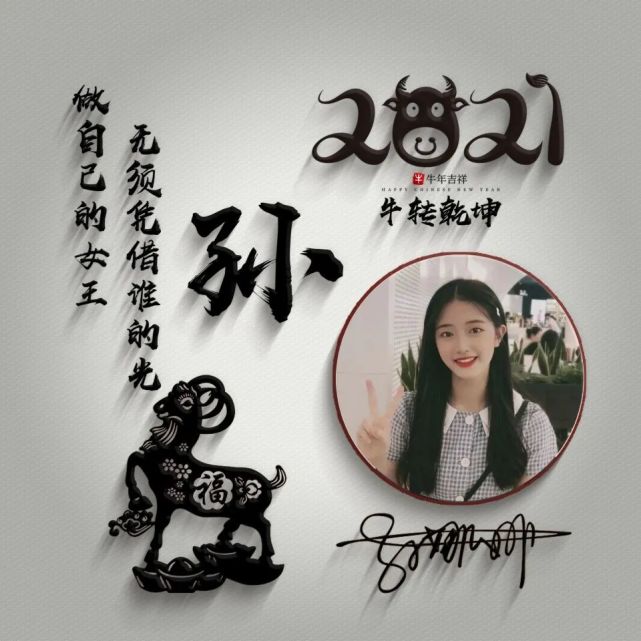 做自己的女王
无须凭借谁的光
孙
2021
牛年吉祥
HAPPY CHINESE NEW YEAR
牛转乾坤
福